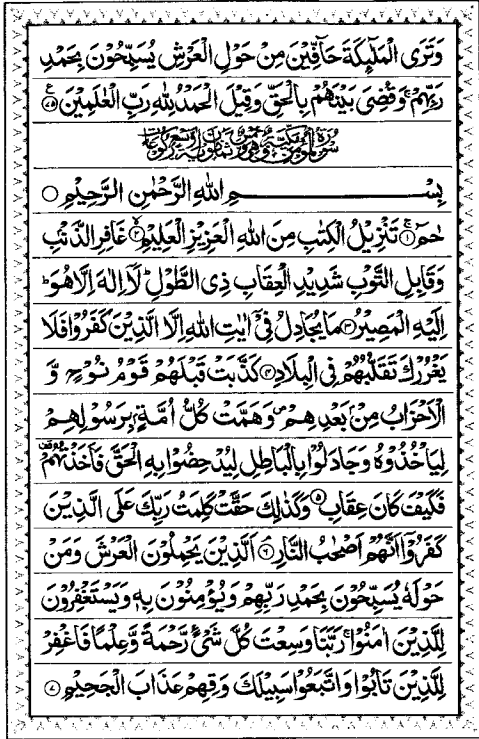 وَتَرَى الْمَلٰٓئِكَةَ حَآفِّيْنَ مِنْ حَوْلِ الْعَرْشِ يُسَبِّحُوْنَ بِحَمْدِ
رَبِّهِمْ ۚ وَقُضِيَ بَيْنَهُمْ بِالْحَقِّ وَقِيْلَ الْحَمْدُ لِلّٰهِ رَبِّ الْعٰلَمِيْنَ ﴿۷۵﴾ ع
سُوْرَةُ الْمُؤْمِنِ مَكِّيَّةٌ وَّهِيَ خَمْسٌ وَّثَمَانُوْنَ اٰيَةً وَّتِسْعُ رُكُوْعَاتٍ
بِسْمِ اللهِ الرَّحْمٰنِ الرَّحِيْمِ ○
حٰمٓ ﴿۱﴾ تَنْزِيْلُ الْكِتٰبِ مِنَ اللهِ الْعَزِيْزِ الْعَلِيْمِ ﴿۲﴾ غَافِرِ الذَّنْۢبِ
وَقَابِلِ التَّوْبِ شَدِيْدِ الْعِقَابِ ذِى الطَّوْلِ ؕ لَآ اِلٰهَ اِلَّا هُوَ ؕ
اِلَيْهِ الْمَصِيْرُ ﴿۳﴾ مَا يُجَادِلُ فِيْٓ اٰيٰتِ اللهِ اِلَّا الَّذِيْنَ كَفَرُوْا فَلَا
يَغْرُرْكَ تَقَلُّبُهُمْ فِى الْبِلَادِ ﴿۴﴾ كَذَّبَتْ قَبْلَهُمْ قَوْمُ نُوْحٍ وَّ
الْاَحْزَابُ مِنْۢ بَعْدِهِمْ ۪ وَهَمَّتْ كُلُّ اُمَّةٍۭ بِرَسُوْلِهِمْ
لِيَاْخُذُوْهُ وَجَادَلُوْا بِالْبَاطِلِ لِيُدْحِضُوْا بِهِ الْحَقَّ فَاَخَذْتُهُمْ
فَكَيْفَ كَانَ عِقَابِ ﴿۵﴾ وَكَذٰلِكَ حَقَّتْ كَلِمَتُ رَبِّكَ عَلَى الَّذِيْنَ
كَفَرُوْٓا اَنَّهُمْ اَصْحٰبُ النَّارِ ﴿۶﴾ اَلَّذِيْنَ يَحْمِلُوْنَ الْعَرْشَ وَمَنْ
حَوْلَهٗ يُسَبِّحُوْنَ بِحَمْدِ رَبِّهِمْ وَيُؤْمِنُوْنَ بِهٖ وَيَسْتَغْفِرُوْنَ
لِلَّذِيْنَ اٰمَنُوْا ۚ رَبَّنَا وَسِعْتَ كُلَّ شَيْءٍ رَّحْمَةً وَّعِلْمًا فَاغْفِرْ
لِلَّذِيْنَ تَابُوْا وَاتَّبَعُوْا سَبِيْلَكَ وَقِهِمْ عَذَابَ الْجَحِيْمِ ﴿۷﴾